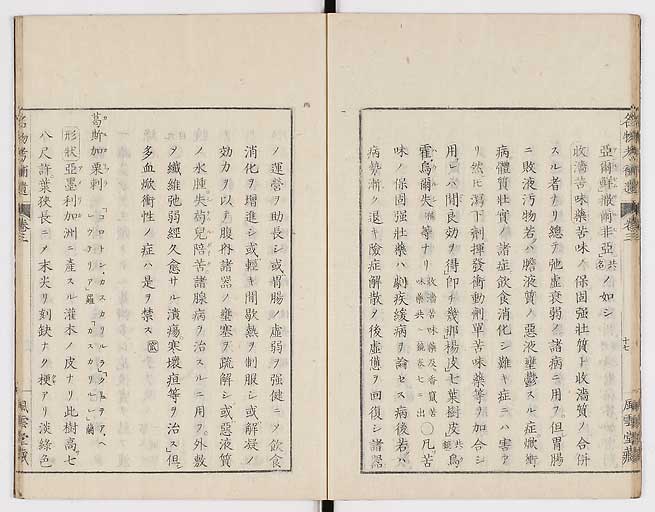 亞爾鮮㪚爾非亞共名ノ如シ
收濇苦味藥苦味ノ保固強壯質ト收濇質ノ合併
スル者ナリ總テ弛虛衰弱ノ諸病ニ用ヲ但胃腸
ニ敗液汚物若ハ膽液質ノ惡液壅鬱スル症焮衝
病體質壯實ノ諸症飲食消化シ難キ症ニハ害ア
リ然ヒ瀉下劑揮發衝動劑單苦味藥等ヲ加合シ
用ヒハ間良効ヲ得即チ幾那楊皮七葉樹皮共鋸烏
霍烏爾失等ナリ收濇苦味藥及香竄苦味藥共ニ篇卷七ニ出○凡苦
味ノ保固強壯藥ハ劇疾緩病ヲ論セス病後若ハ
病勢漸ク退キ險症解散ヲ後虛憊ヲ回復シ諸器
名物考補遺 卷三 十七 風雲堂藏
ノ運營ヲ助長シ或胃腸ノ虛弱ヲ強健ニヲ飲食
消化ヲ增進シ或輕キ間歇熱ヲ制服シ或解凝ノ
効力ヲ以テ腹脊諸器ノ壅塞ヲ疏解シ或惡液質
ノ水腫失荀兒陪苦諸腺病ヲ治スルニ用ヲ外敷
ヲ纎維弛弱經久愈サル潰瘍寒壞疽等ヲ治ス但
多血焮衝性ノ症ハ是ヲ禁ス
葛斯加栗剌
形狀亞墨利加洲ニ產スル灌木ノ皮ナリ此樹高七
八尺許葉狹長ニヲ末尖リ刻缺ナク梗アリ淡綠色
名物考補遺 卷三 風雲堂藏